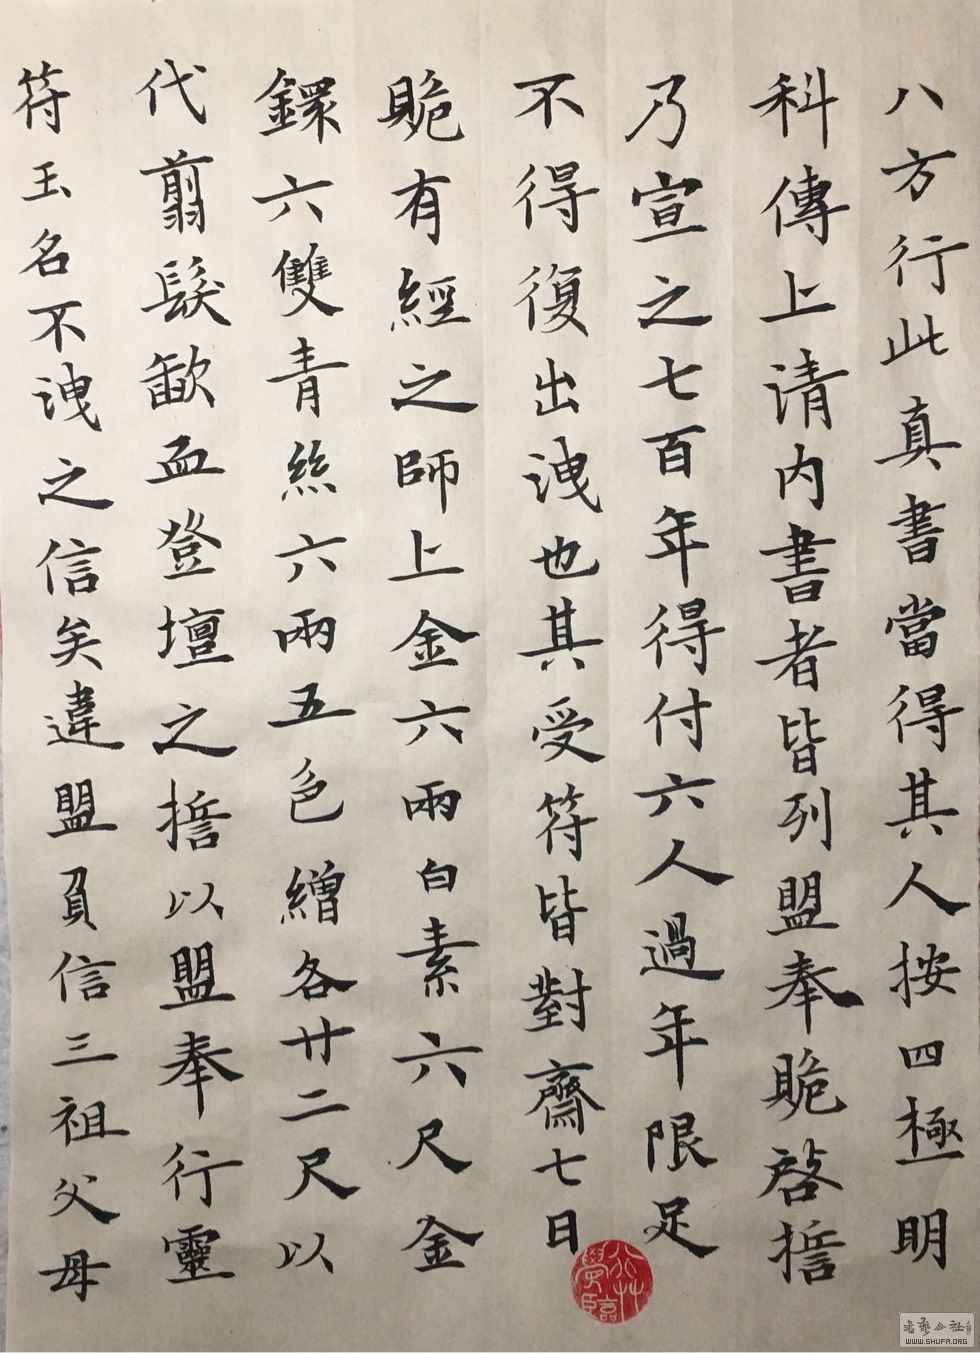 八方行此真書當得其人按四極明
科傳上清內書者皆列盟奉賝啓擔
乃宣之七百年得付六人過年限足
不得復出洩也其受符皆對齋七日
賝有經之師上金六兩白素六尺金
鐶六雙青絲六兩五色繒各廿二尺以
代翦髮歃血登壇之擔以盟奉行靈
符玉名不洩之信矣違盟負信三祖父母
WWW.SHUFA.ORG